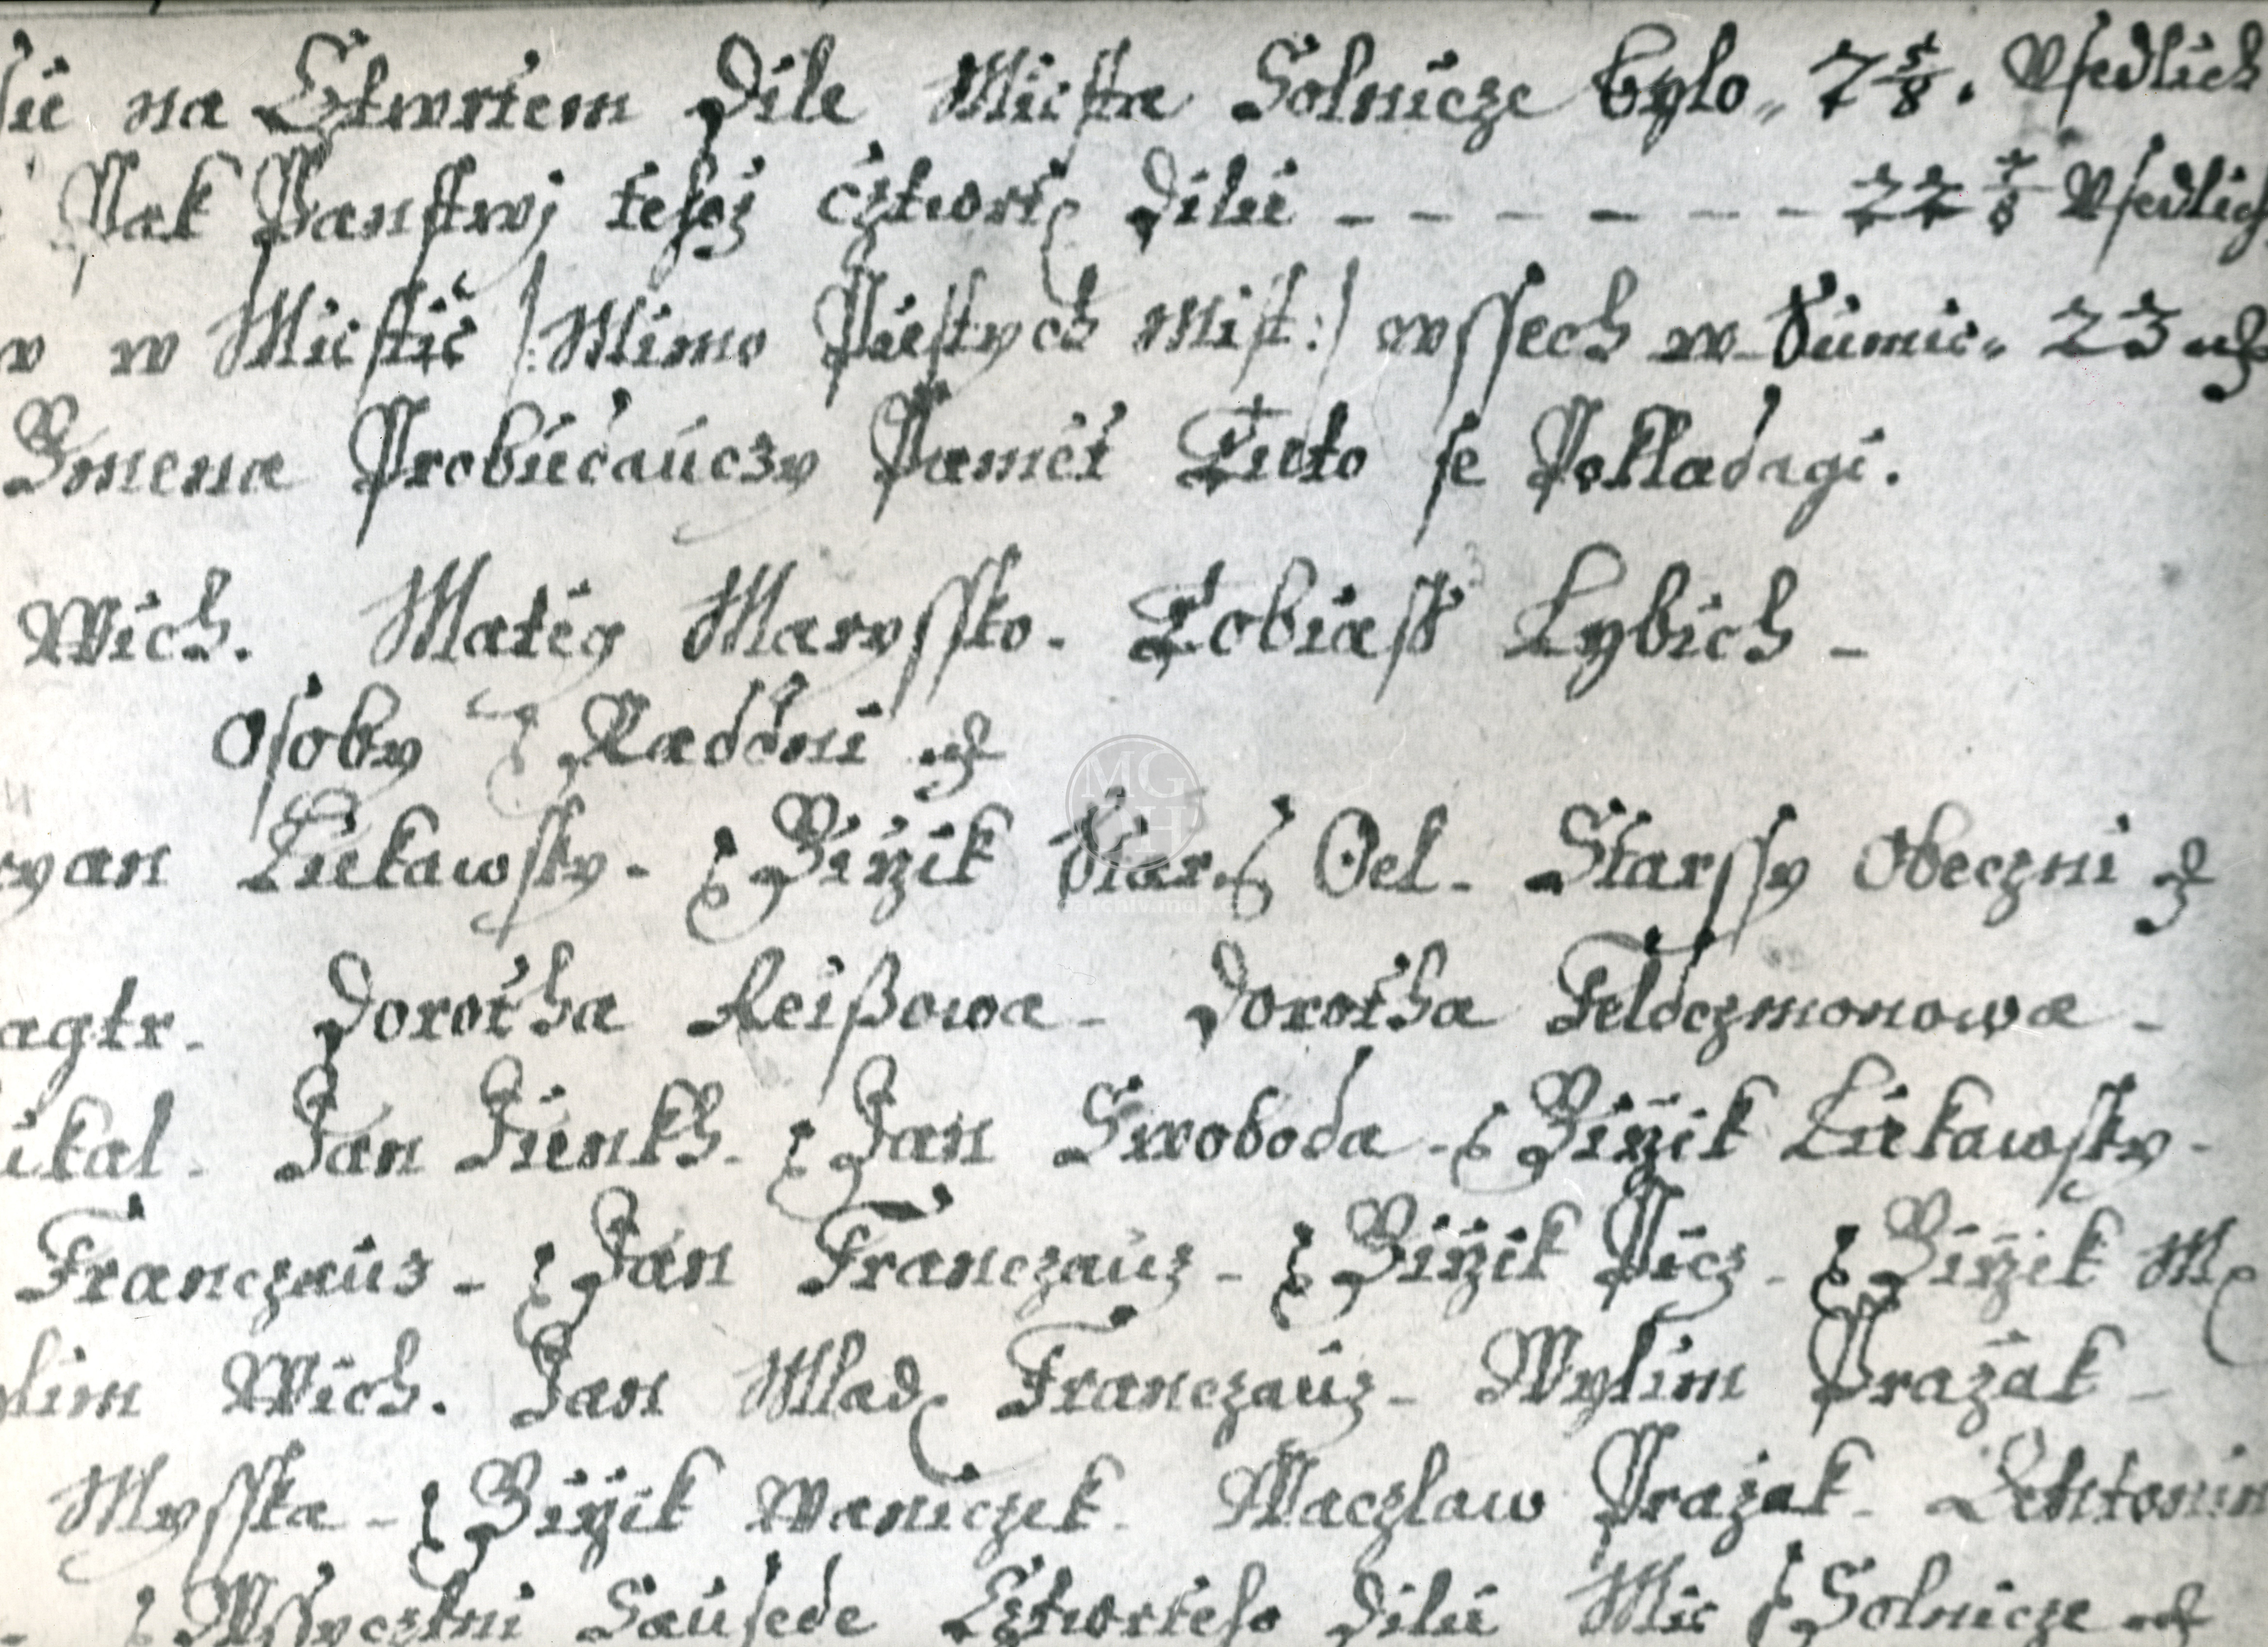 na Cztwrtem Dile Miesta Solnicze bylo„ 7 5/8. Usedlich
Pak Panstwj tehoz cztwrt Dilu – – – – – – – 22 7/8 Usedlich
w Miestie /: Mimo Pustych Mist :/ wssech w Summie„ 23
Gmena Probudauczy Pamet Tuto se Pokladagi.
Wich. Mateg Maryssko. Tobiass Lybich –
Osoby Raddni
Lukawsky – Girzik Star Oel – Starssy Obeczni
Dorotha Reißowa – Dorotha Feldczmonowa –
ikal. Jan Funkh – Jan Swoboda – Girzik Lukawsky –
Franczauz – Jan Franczauz – Girzik Picz – Girzik M
lim Wich. Jan Mlad Franczauz – Wylim Prażak –
Mysska – Girzik Waniczek. Waczlaw Prażak – Antonin
Wssyczkni Sausede Cztwrteho Dilu Mie Solnicze
MGH